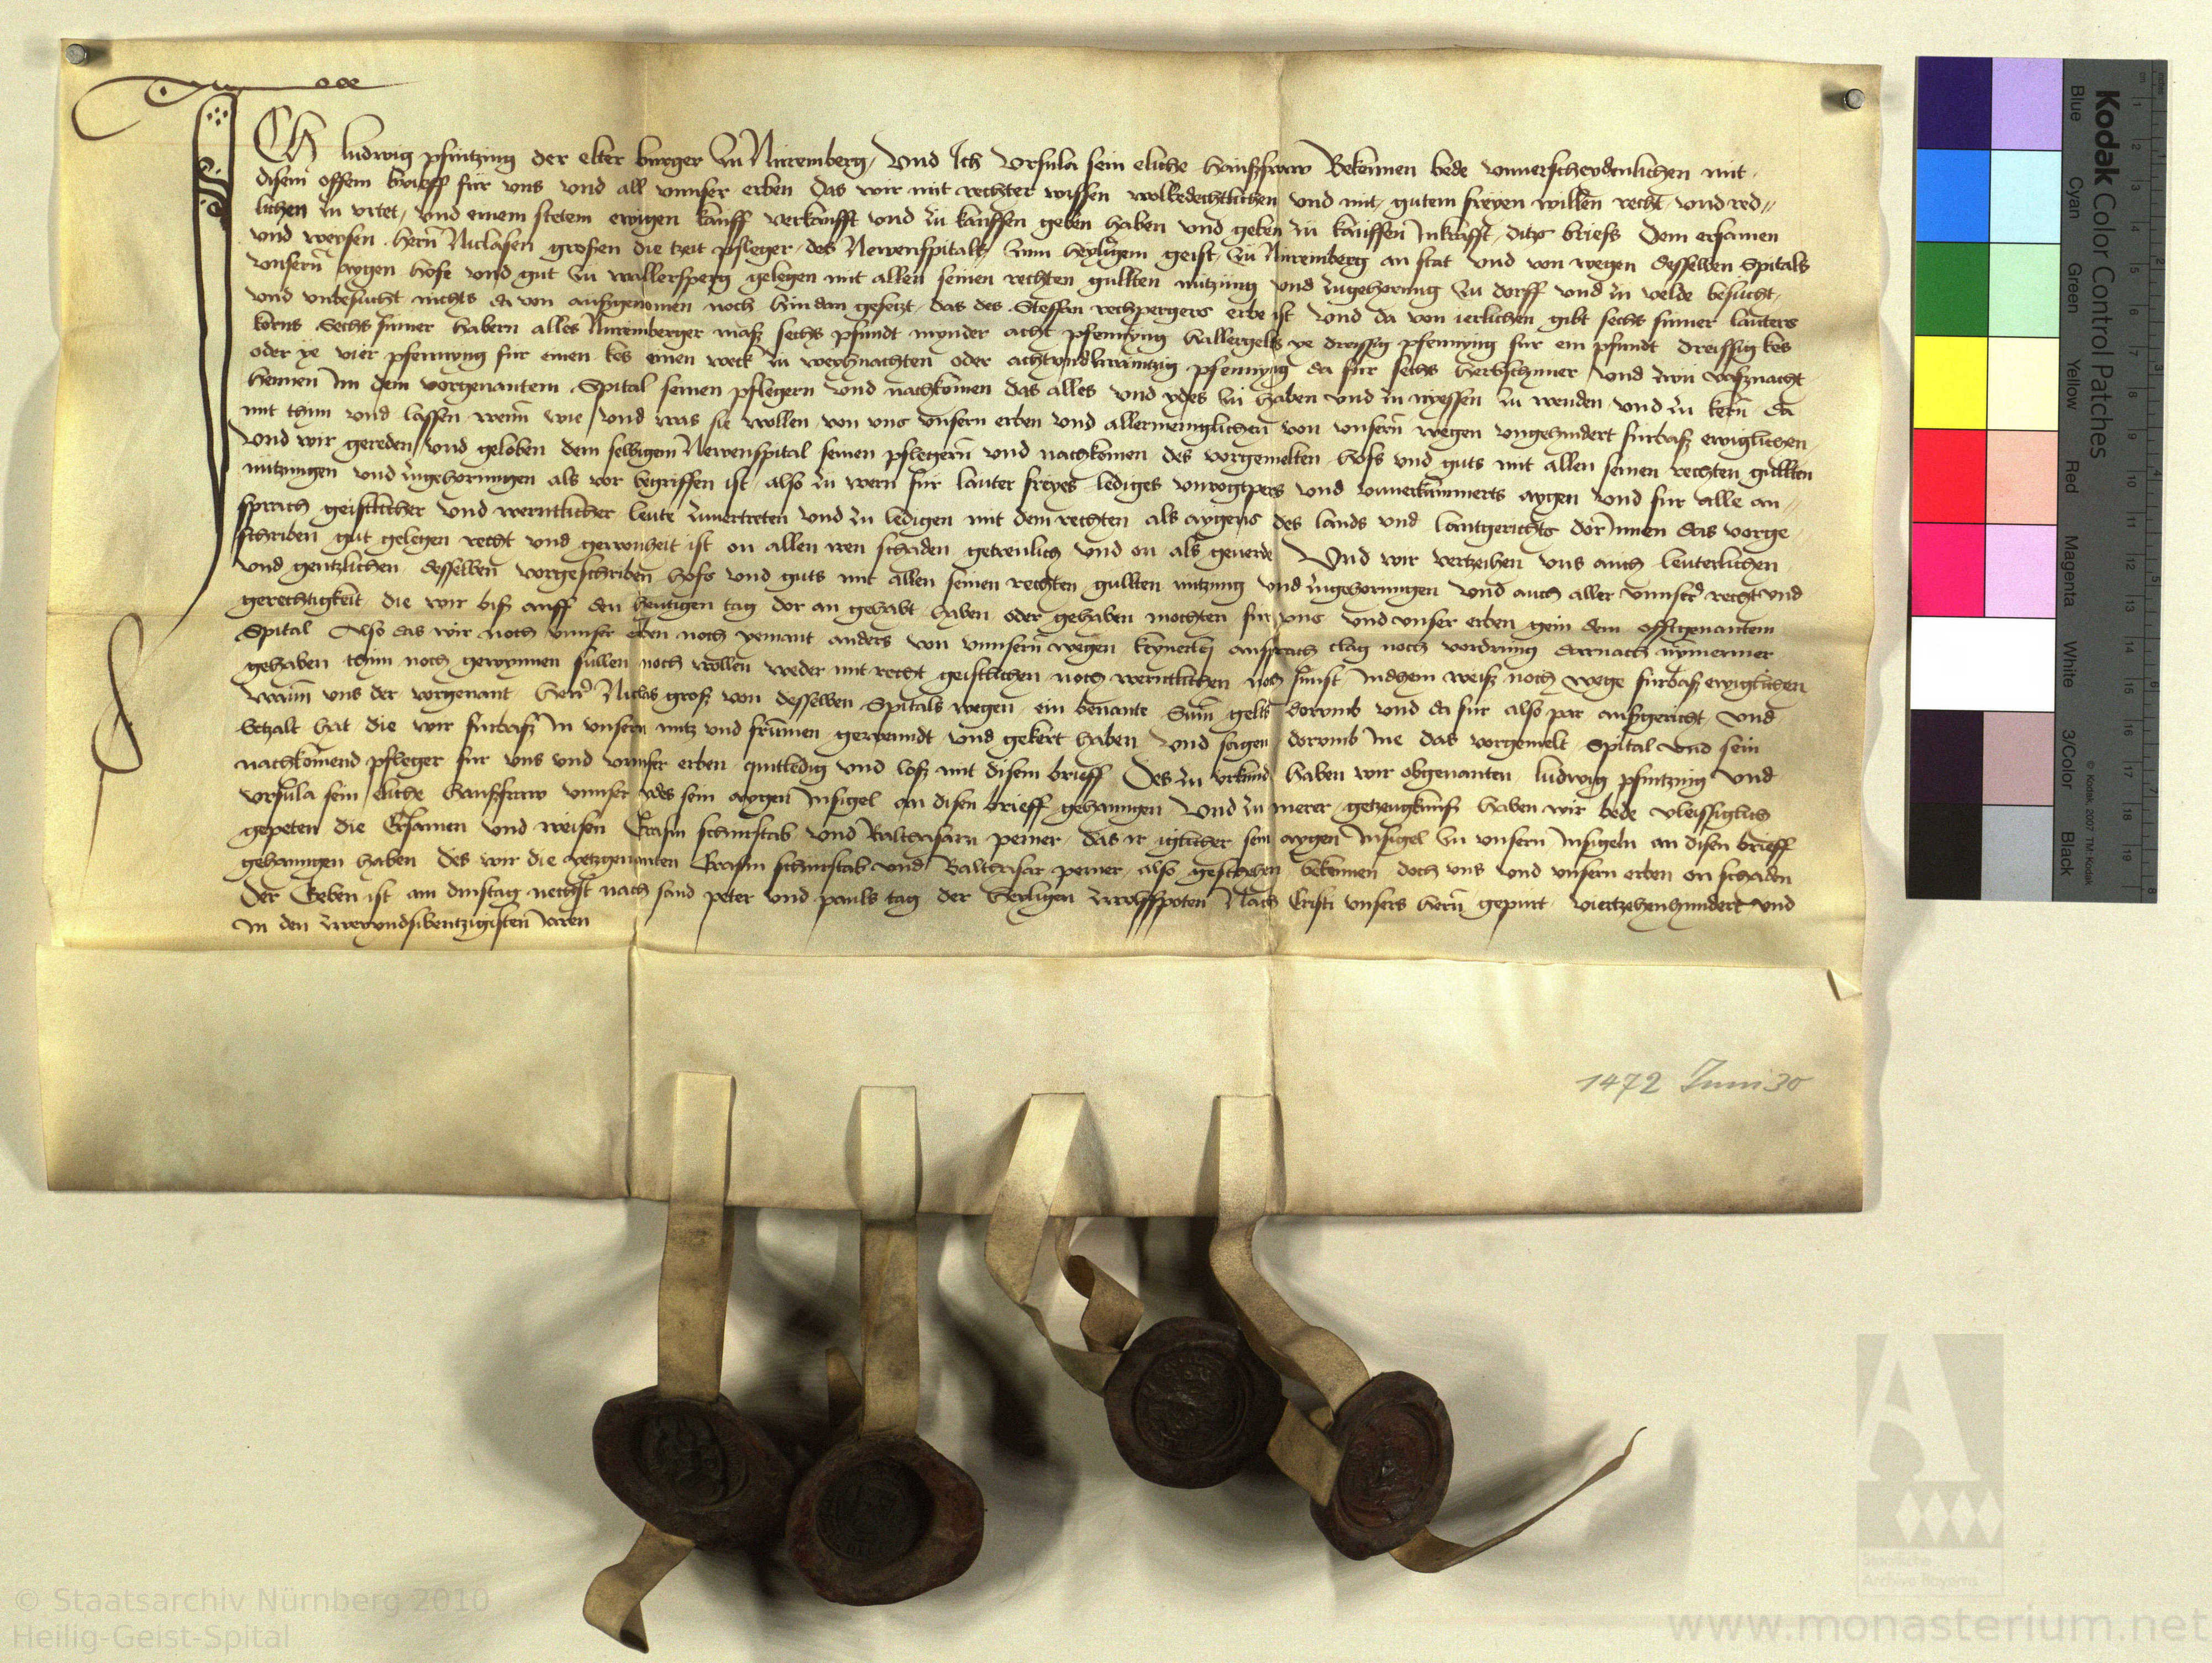 ICh ludwig pfintzing der elter burger zu Nuremberg Und Ich Ursula sein eliche hausfraw Bekennen bede unuerscheydenlichen mit
disem offem brieff für uns und all unnser erben das wir mit rechter wissen wolbedechtlichen und mit gutem freyen willen recht und red
lichen zu urtet und einem stetem ewigen kauff verkaufft und zu kauffen geben haben und geben zu kauffen Inkrafft ditz briefs Dem ersamen
und weysen hern Niclasen großen die tzeit pfleger des Newenspitals zum heyligem geist zu Nuremberg an stat und von wegen desselben Spitals
unsern aygen hofe und gut zu wallersperg gelegen mit allen seinen rechten gullten nutzung und zugehorung zu dorff und zu velde besucht
und unbesucht nichts da von außgenomen noch hindan gesetzt das des Steffan rechpergers erbe ist und da von ierlichen gibt sechs sumer lauters
korns Sechs sumer habern alles Nuremberger maß sechs pfundt mynder acht pfennyng hallergelts ye dreissig pfennyng fur ein pfundt dreissig kes
oder ye vier pfennyng fur einen kes einen weck zu weyhnachten oder achtundtzwaintzig pfennyng da fur sechs herbsthuner und zwu vaßnacht
hennen Im dem vorgenantem Spital seinen pflegern und nachkomen das alles und ydes zu haben und zu nyessen zu wenden und zu kern da
mit thun und lassen wenn wie und was sie wollen von uns unsern erben und allermeniglichen von unsern wegen ungehindert furbaß ewiglichen
Und wir gereden und geloben dem selbigem Newenspital seinen pflegern und nachkomen des vorgemelten hofs und guts mit allen seinen rechten gullten
nutzungen und zugehorungen als vor begriffen ist also zu wern fur lauter freyes lediges unuogtpers und unuerkumerts aygen und fur alle an
sprach geistlicher und werntlicher leute zuuertreten und zu ledigen mit dem rechten als aygens des lands und lantgerichts dor Innen das vorge
schriben gut gelegen recht und gewonheit ist on allen iren schaden getreulich und on als geuerde Und wir vertzeihen uns auch leuterlichen
und gentzlichen desselben vorgeschriben hofs und guts mit allen seinen rechten gullten nutzung und zugehorungen und auch aller unnser recht und
gerechtigkeit die wir biß auff den heutigen tag dor an gehabt haben oder gehaben mochten fur uns und unser erben gein dem offtgenantem
Spital Also das wir noch unnser erben noch yemant anders von unnsern wegen keynerley ansprach clag noch vordrung darnach nymermer
gehaben thun noch gewynnen sullen noch wollen weder mit recht geistlichen noch werntlichen noch sunst Indhein weiß noch wege furbaß ewiglichen
Wann uns der vorgenant herr Niclas groß von desselben Spitals wegen ein benante Sum gelts dorumb und da fur also par außgericht und
betzalt hat die wir furbaß In unsern nutz und frumen gewenndt und gekert haben Und sagen dorumb Ine das vorgemelt Spital und sein
nachkomend pfleger fur uns und unnser erben quittledig und loß mit disem brieff Des zu urkund haben wir obgenanten ludwig pfintzing und
Ursula sein eliche haußfraw unnser ydes sein aygen Insigel an disen brieff gehanngen Und zu merer getzeugknuß haben wir bede vleissiglich
gepeten die Ersamen und weisen Erasm schurstab und Balthasarn peiner das Ir iglicher sein aygen Insigel zu unsern Insigeln an disen brieff
gehanngen haben des wir die yetzgenanten Erasm schurstab und Balthasar peiner also geschehen bekennen doch uns und unsern erben on schaden
Der Geben ist am dinstag nechst nach sand peter und pauls tag der heyligen zwolffpoten Nach Cristi unsers hern gepurt viertzehenhundert und
In den zweyundsibentzigisten Iaren
1472 Juni 30
Kodak Color Control Patches
Blue Cyan Green Yellow Red Magenta White 3/Color Black
© Kodak, 2007 TM: Kodak
© Staatsarchiv Nürnberg 2010
Heilig-Geist-Spital
www.monasterium.net